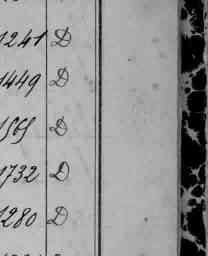 1241 D
1449 D
1569 D
1732 D
1280 D